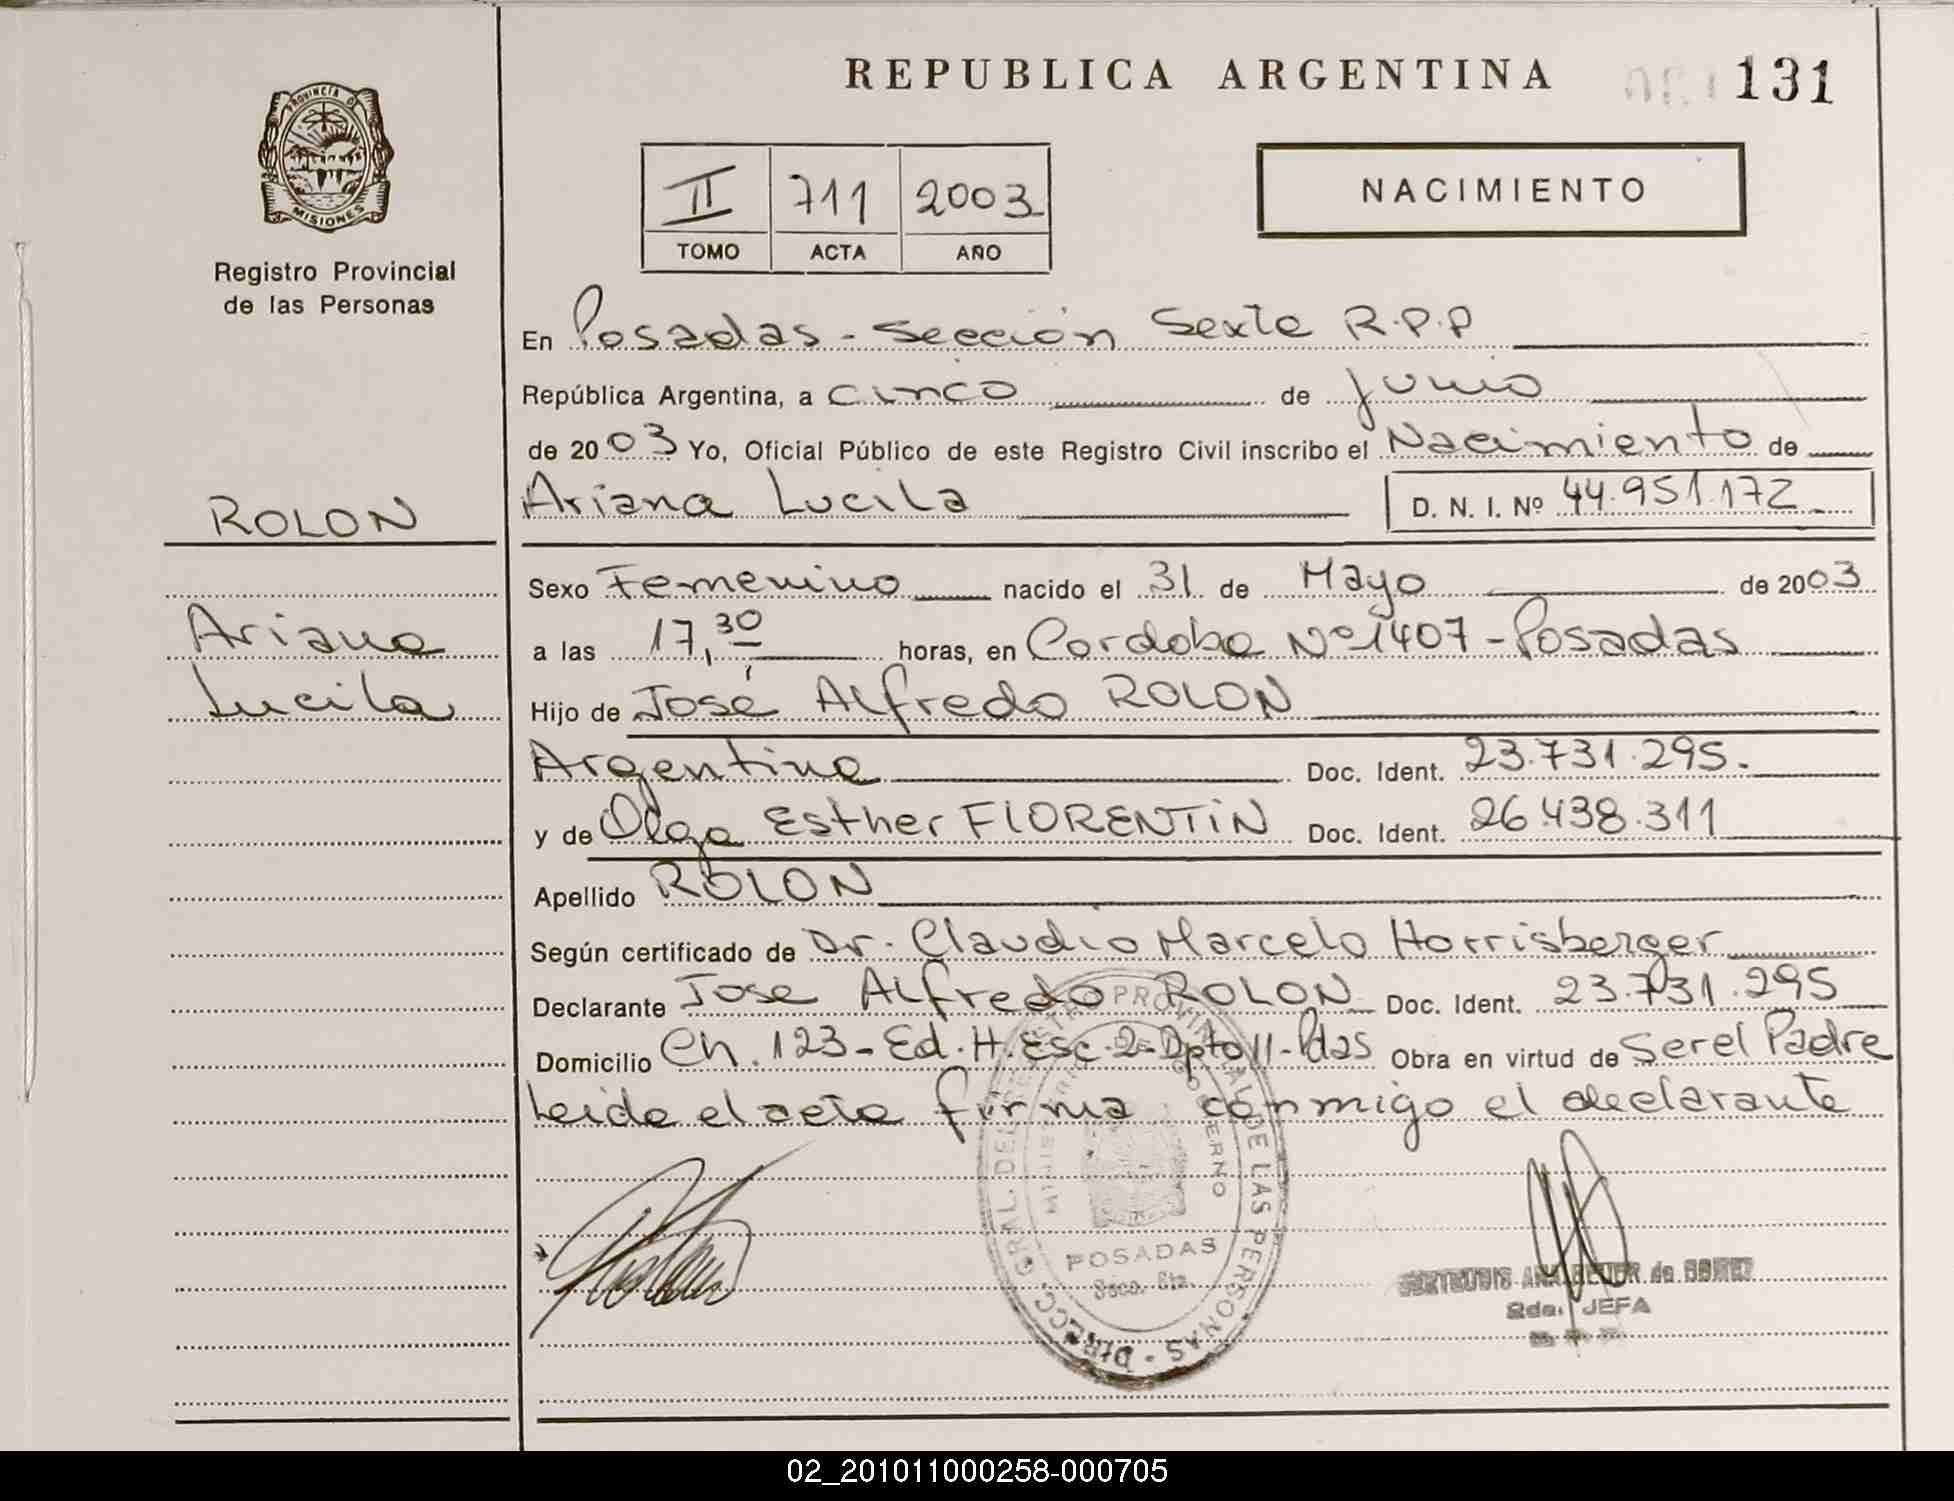 REPUBLICA ARGENTINA
131
PROVINCIA DE
MISIONES
Registro Provincial
de las Personas
II 711 2003
TOMO ACTA AÑO
NACIMIENTO
En Posadas - Sección Sexta R.P.P
República Argentina, a cinco de junio
de 2003 Yo, Oficial Público de este Registro Civil inscribo el Nacimiento de
Ariana Lucila D. N. I. Nº 44.951.172
ROLON
Ariana
Lucila
Sexo Femenino nacido el 31 de Mayo de 2003
a las 17,30 horas, en Cordoba Nº 1407 - Posadas
Hijo de José Alfredo ROLON
Argentina Doc. Ident. 23.731.295.
y de Olga Esther FLORENTIN Doc. Ident. 26.438.311
Apellido ROLON
Según certificado de Dr. Claudio Marcelo Horrisberger
Declarante Jose Alfredo ROLON Doc. Ident. 23.731.295
Domicilio Ch. 123 - Ed. H. Esc. 2 - Dpto 11 - Pdas Obra en virtud de Ser el Padre
Leida el acta firma conmigo el declarante
DIRECC. GRAL. DEL REGISTRO PROVINCIAL DE LAS PERSONAS
MINISTERIO DE GOBIERNO
POSADAS
Secc. 6ta.
2da. JEFA
02_201011000258-000705